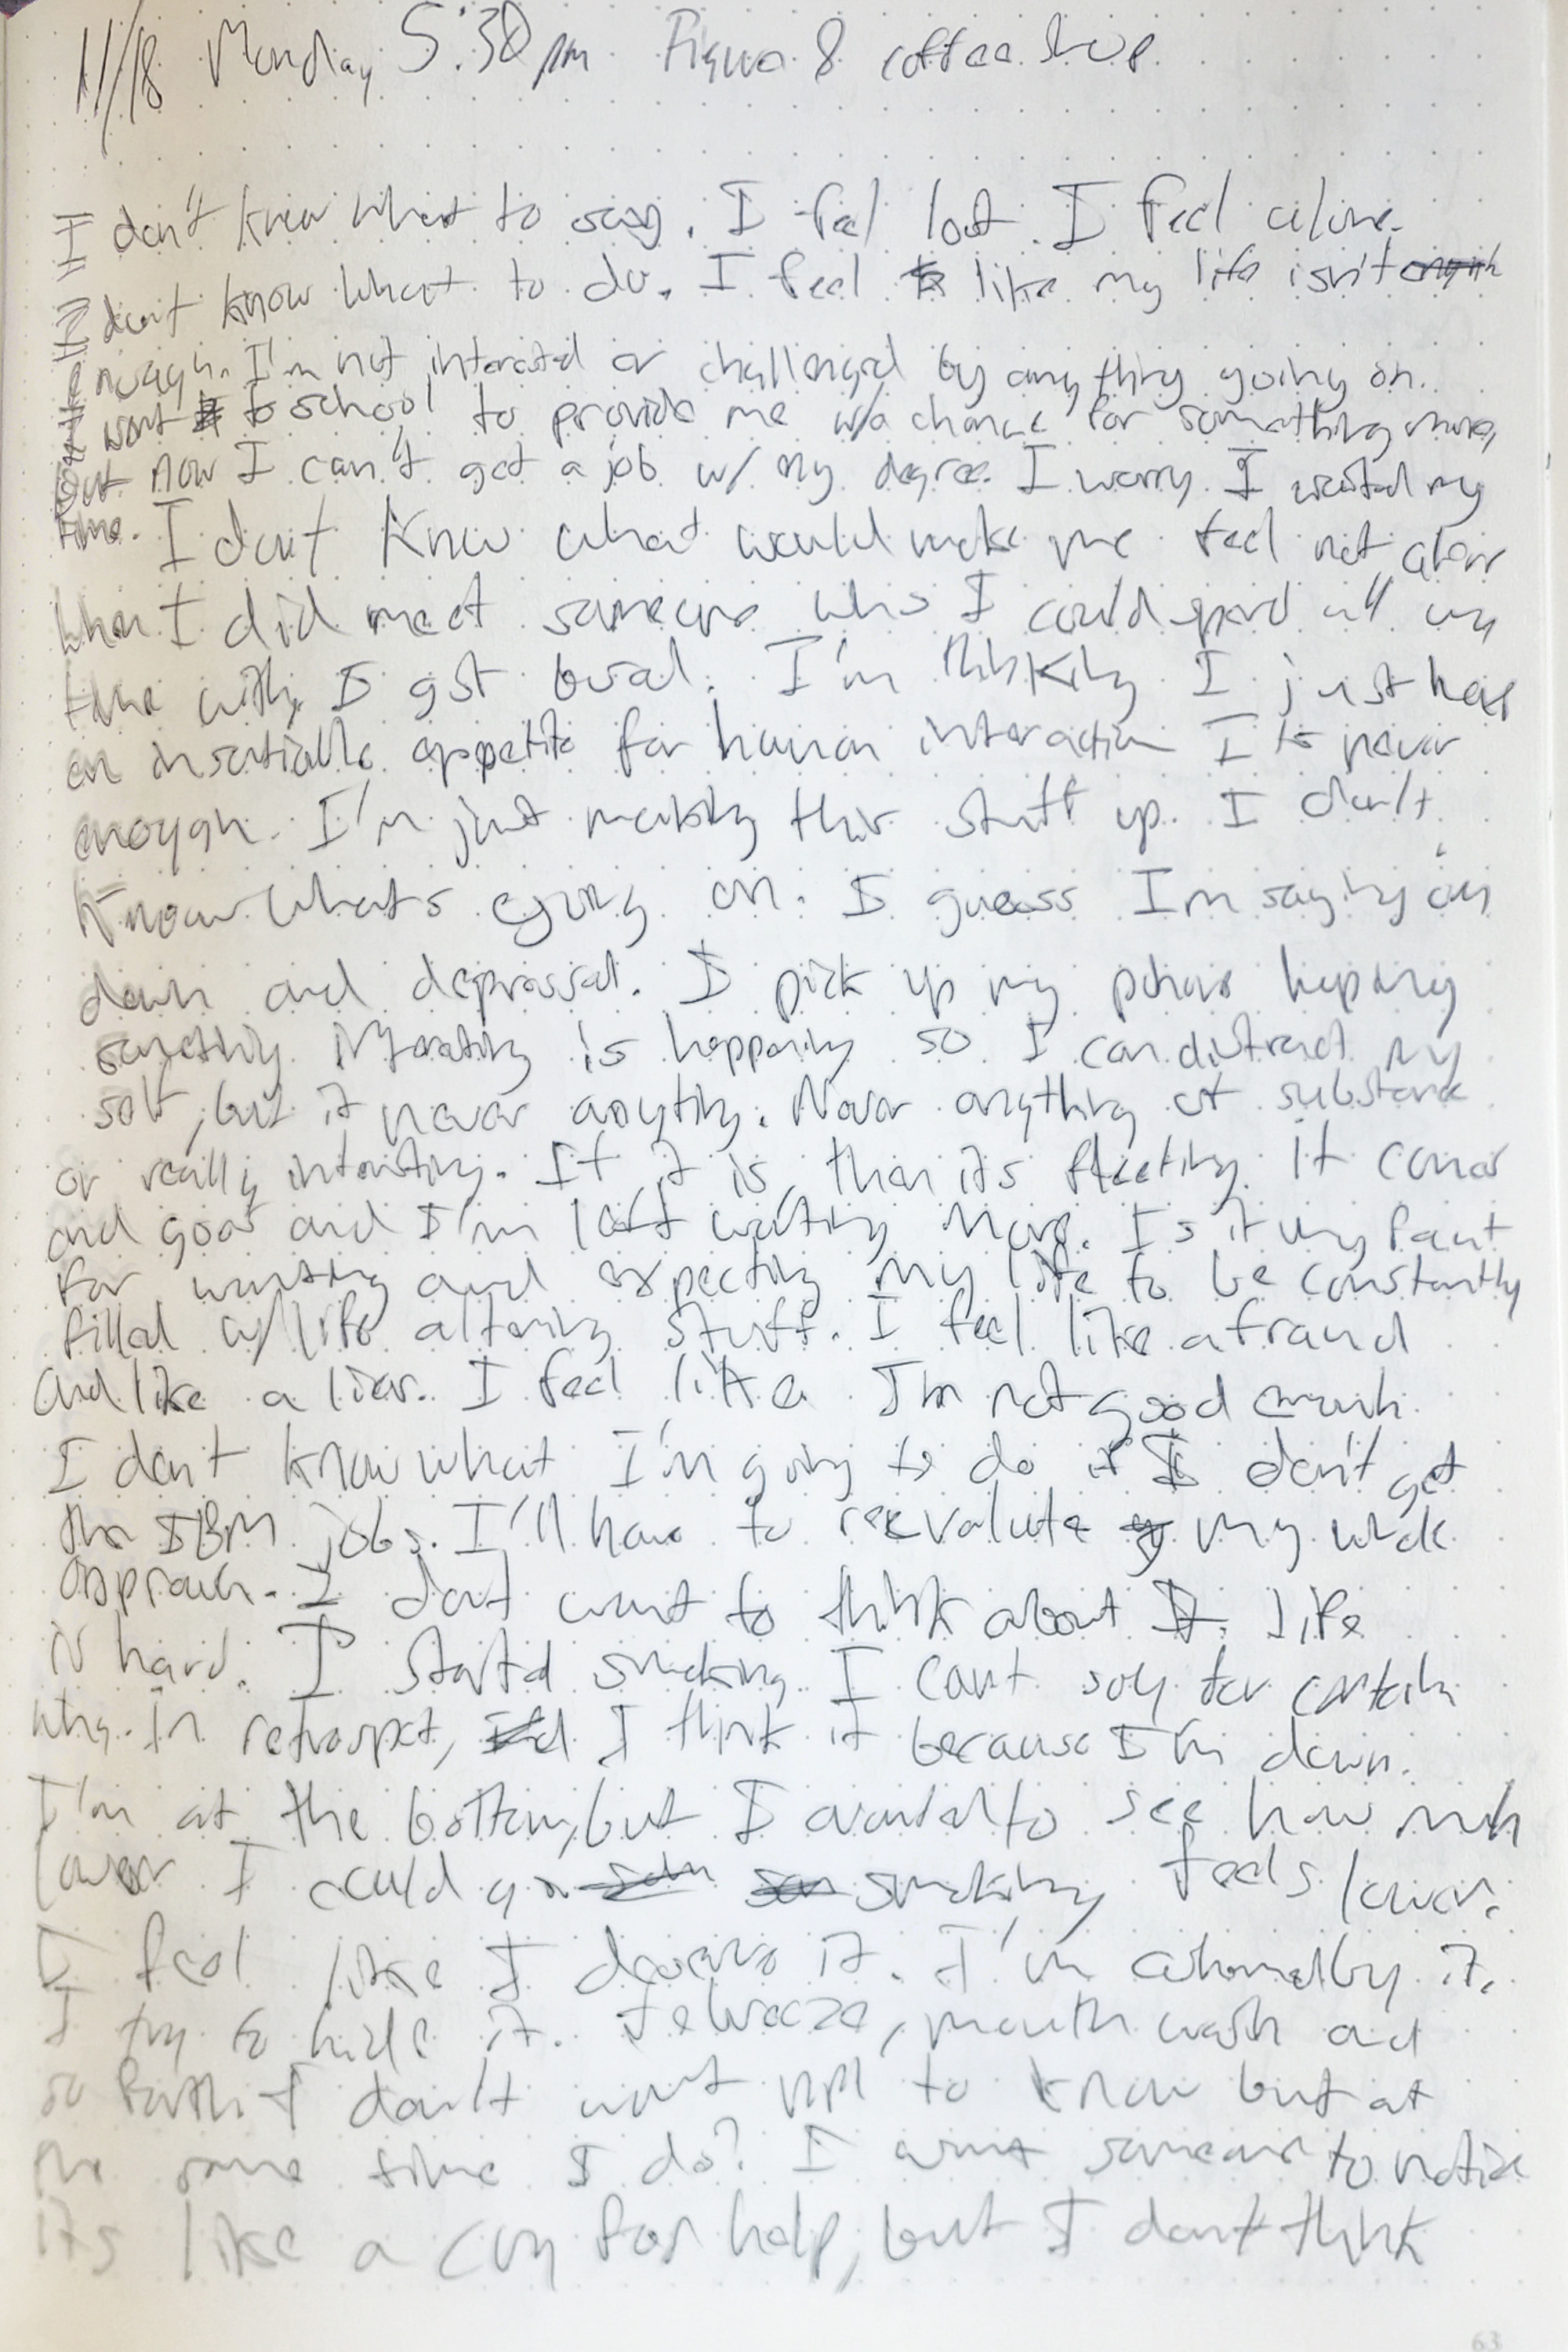 11/18 Monday 5:30pm Figure 8 coffee shop
I don't know what to say. I feel lost. I feel alone.
I don't know what to do. I feel like my life isn't
enough. I'm not interested or challenged by anything going on.
I went to school to provide me w/a chance for something more,
but now I can't get a job w/ my degree. I worry I wasted my
time. I don't know what would make me feel not alone
When I did meet someone who I could spend all my
time with, I got bored. I'm thinking I just have
an insatiable appetite for human interaction I is never
enough. I'm just making this stuff up. I don't
know whats going on. I guess I'm saying im
down and depressed. I pick up my phone hoping
something interesting is happening so I can distract my
self, but it never anyting. Never anything of substance
or really intersting. If it is, then its fleeting. It comes
and goes and I'm left wanting more. Is it my faut
for wanting and expecting my life to be constantly
filled w/life altering stuff. I feel like a fraud
and like a liar. I feel like I'm not good enough.
I don't know what I'm going to do if I don't get
the IBM jobs. I'll have to reevaluate my whole
approach. I dont want to think about It. life
is hard. I started smoking. I cant say for certain
why. In retrospect, I think it because I'm down.
I'm at the bottom, but I wanted to see how much
lower I could go smoking feels lower.
I feel like I deserve it. I'm ashamed by it.
I try to hide it. Febreeze, mouth wash and
so forth I don't want ppl to know but at
the same time I do? I want someone to notice
its like a cry for help, but I dont think
63